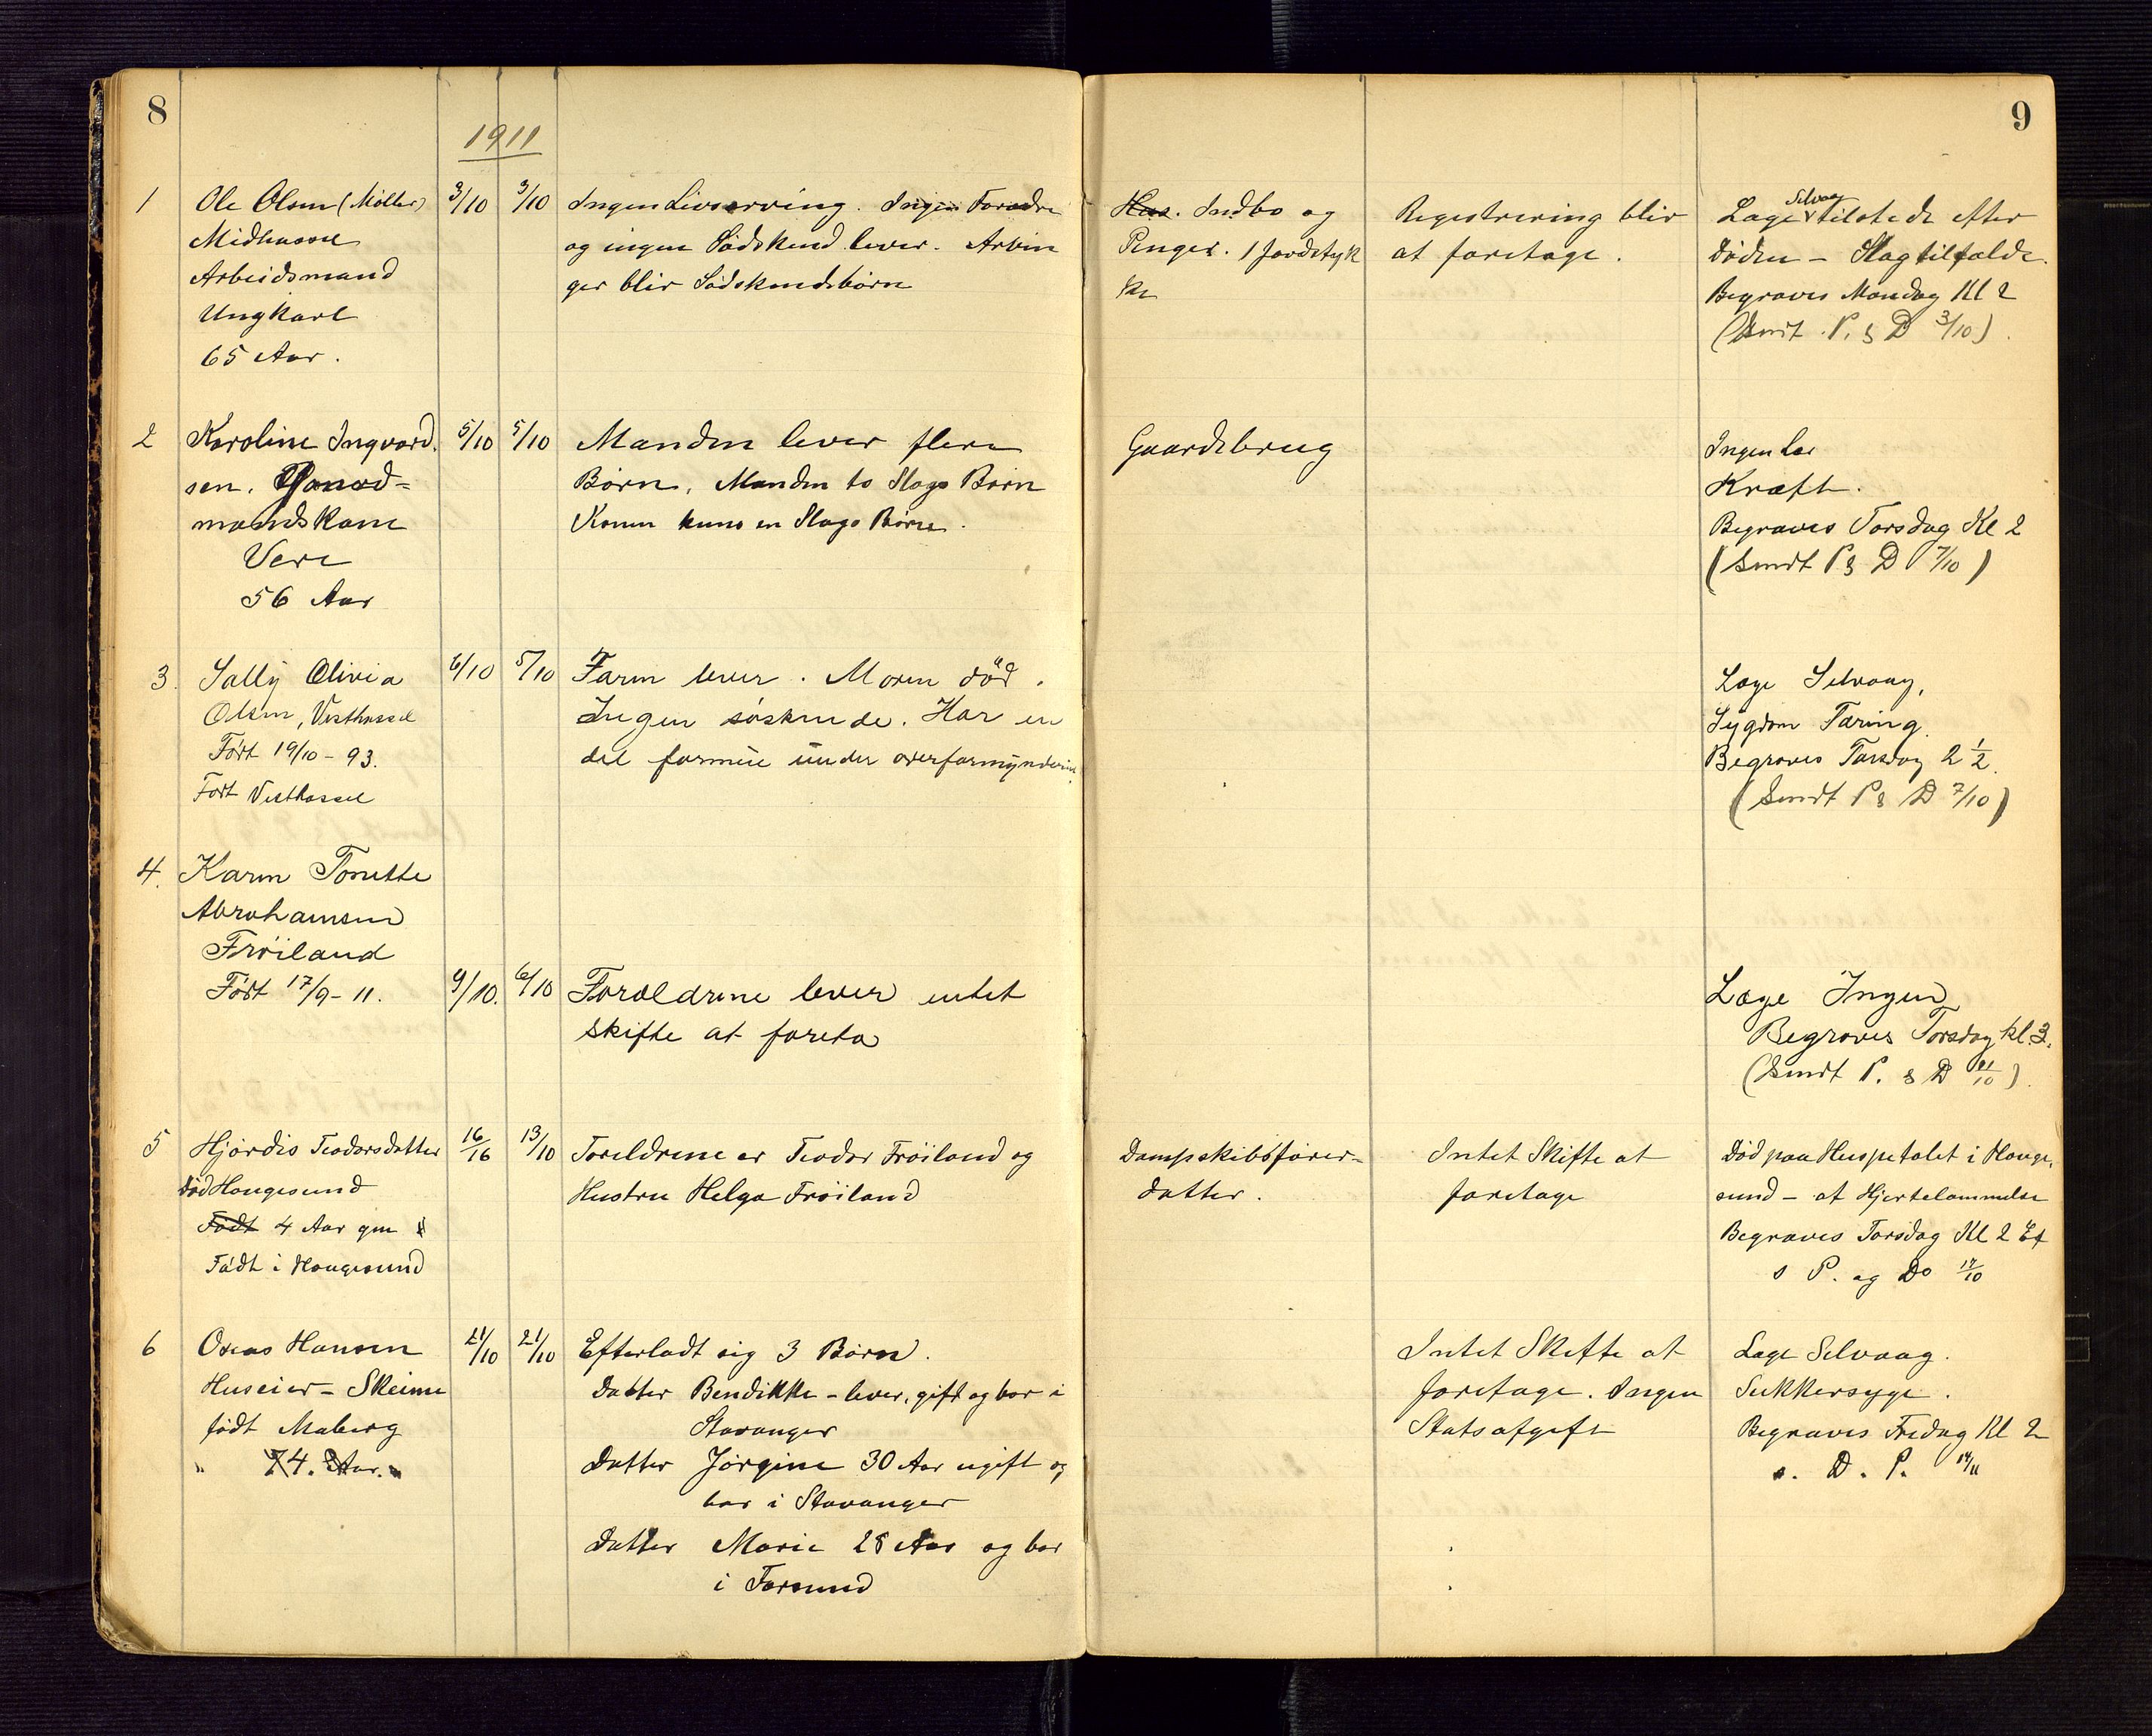 8
9
1911
1
Ole Olsen (Møller)
Midhassel
Arbeidsmand
Ungkarl
65 Aar.
3/10
3/10
Ingen Livsarving. Ingen Forældre
og ingen Sødskend lever. Arvin
ger blir Sødskendebørn
Hus. Indbo og
Penger. 1 Jordstyk
ke
Registrering blir
at foretage.
Selvaag
Læge tilstede efter
døden – Slagtilfælde.
Begraves Mandag Kl 2
(Sendt P. & D 3/10)
2
Karoline Ingvard
sen. Gaard=
mandskone
Vere
56 Aar
5/10
5/10
Manden lever flere
Børn. Manden to Slags Børn
Konen kuns en Slags Børn.
Gaardsbrug
Ingen læ
Kræft.
Begraves Torsdag Kl 2
(Sendt P & D 7/10)
3.
Sally Olivia
Olsen, Vesthassel
Født 19/10 – 93.
Født Vesthassel
6/10
5/10
Faren lever. Moren död.
Ingen søskende. Har en
del formue under overformynderiet.
Læge Selvaag,
Sygdom Tæring.
Begraves Torsdag 2 1/2.
(Sendt P & D 7/10)
4.
Karen Tonette
Abrahamsen
Frøiland
Født 17/9 – 11.
9/10.
6/10
Forældrene lever intet
skifte at foreta
Læge Ingen
Begraves Torsdag kl. 3.
(Sendt P. & D /10)
5
Hjørdis Teodorsdatter
død Haugesund
Født 4 Aar gm
Født i Haugesund
16/16
13/10
Foreldrene er Teodor Frøiland og
Hustru Helga Frøiland
Dampskibsfører-
datter.
Intet Skifte at
foretage
Død paa Huspetalet i Hauge,
sund – af Hjertelammelse
Begraves Torsdag Kl 2 Ef
s P. og Do 17/10
6
Oseas Hansen
Huseier – Skeime
født Maberg
" 74. Aar. "
21/10
21/10
Efterladt sig 3 Børn.
Datter Bendikke – lever, gift og bor i
Stavanger
Datter Jørgine 30 Aar ugift og
bor i Stavanger
Datter Marie 28 Aar og bor
i Farsund
Intet Skifte at
foretage. Ingen
Statsafgift
Læge Selvaag.
Sukkersyge.
Begraves Fredag Kl 2
s. D. P. 14/11